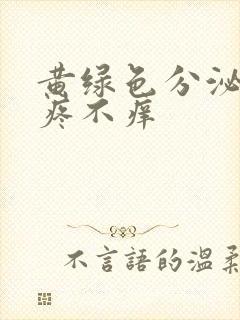 黄绿色分泌
疼不痒
不言語的溫柔